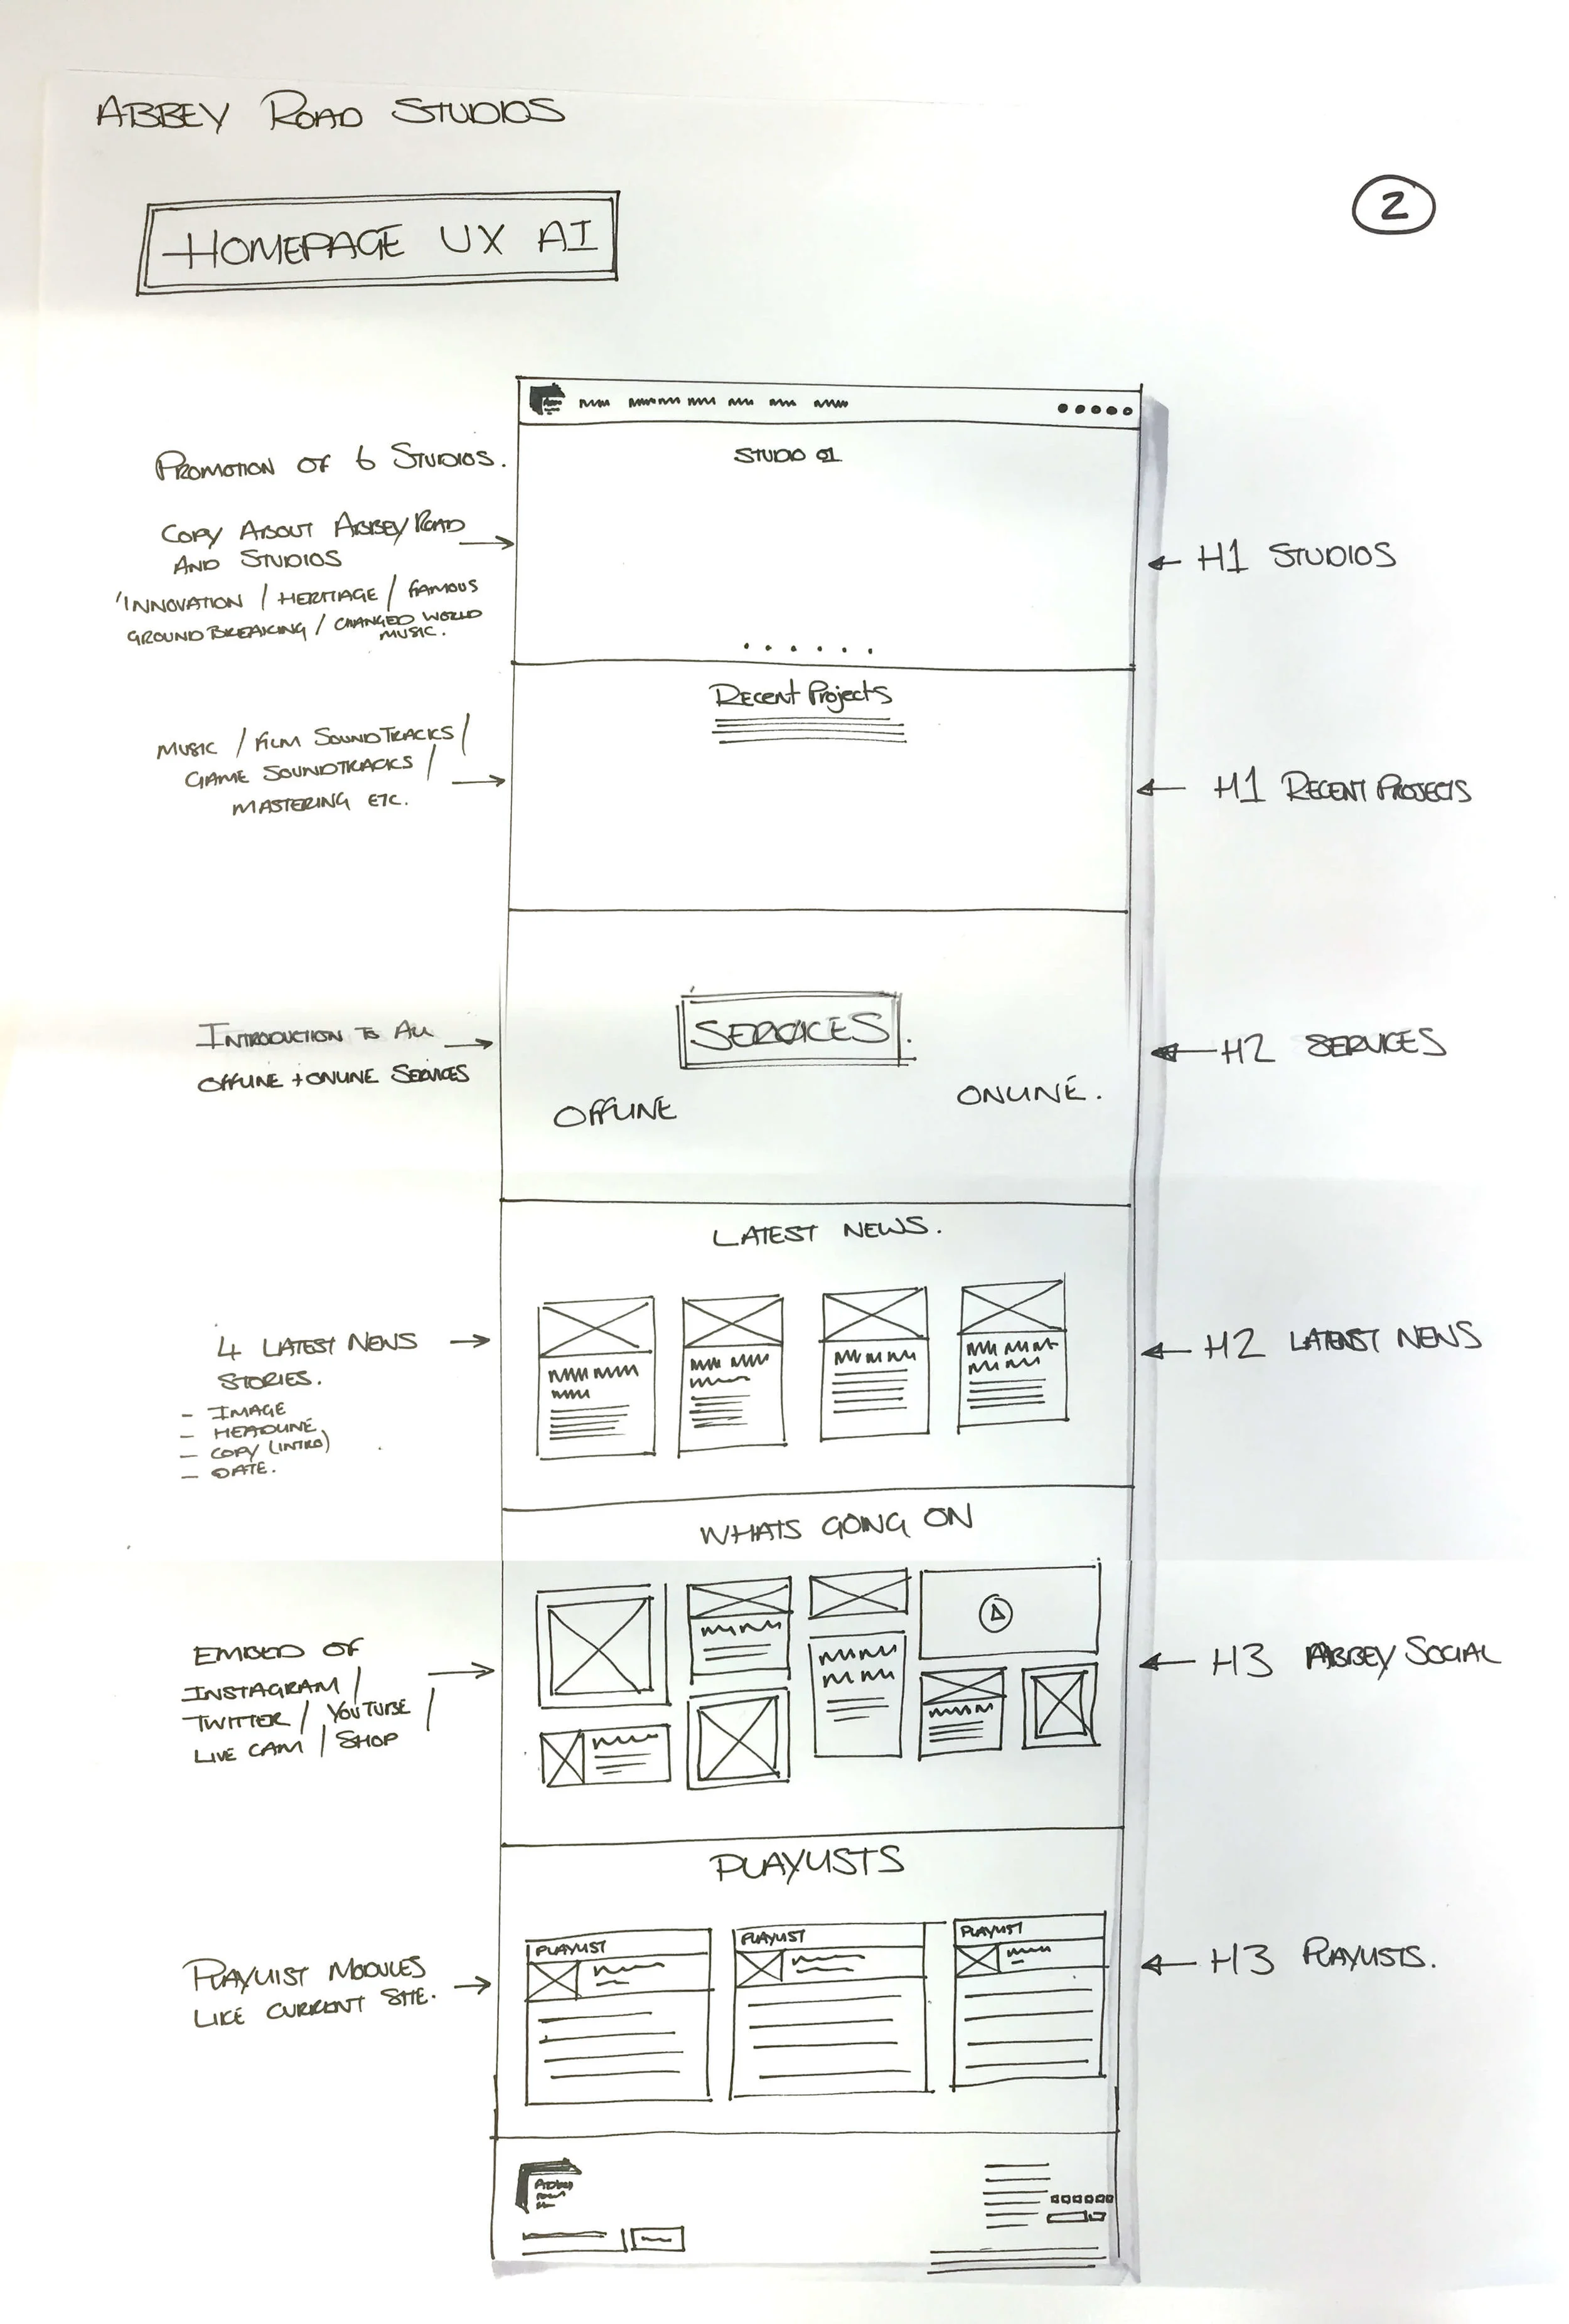 ABBEY ROAD STUDIOS
HOMEPAGE UX AI
2
PROMOTION OF 6 STUDIOS.
COPY ABOUT ABBEY ROAD
AND STUDIOS
'INNOVATION / HERITAGE / FAMOUS
GROUND BREAKING / CHANGED WORLD
MUSIC.
STUDIO 01
H1 STUDIOS
MUSIC / FILM SOUNDTRACKS /
GAME SOUNDTRACKS /
MASTERING ETC.
Recent Projects
H1 RECENT PROJECTS
INTRODUCTION TO ALL
OFFLINE + ONLINE SERVICES
SERVICES.
OFFLINE
ONLINE.
H2 SERVICES
4 LATEST NEWS
STORIES.
- IMAGE
- HEADLINE
- COPY (INTRO)
- DATE.
LATEST NEWS.
H2 LATEST NEWS
EMBED OF
INSTAGRAM /
TWITTER / YOUTUBE /
LIVE CAM / SHOP
WHATS GOING ON
H3 ABBEY SOCIAL
PLAYLIST MODULES
LIKE CURRENT SITE.
PLAYLISTS
PLAYLIST
PLAYLIST
PLAYLIST
H3 PLAYLISTS.